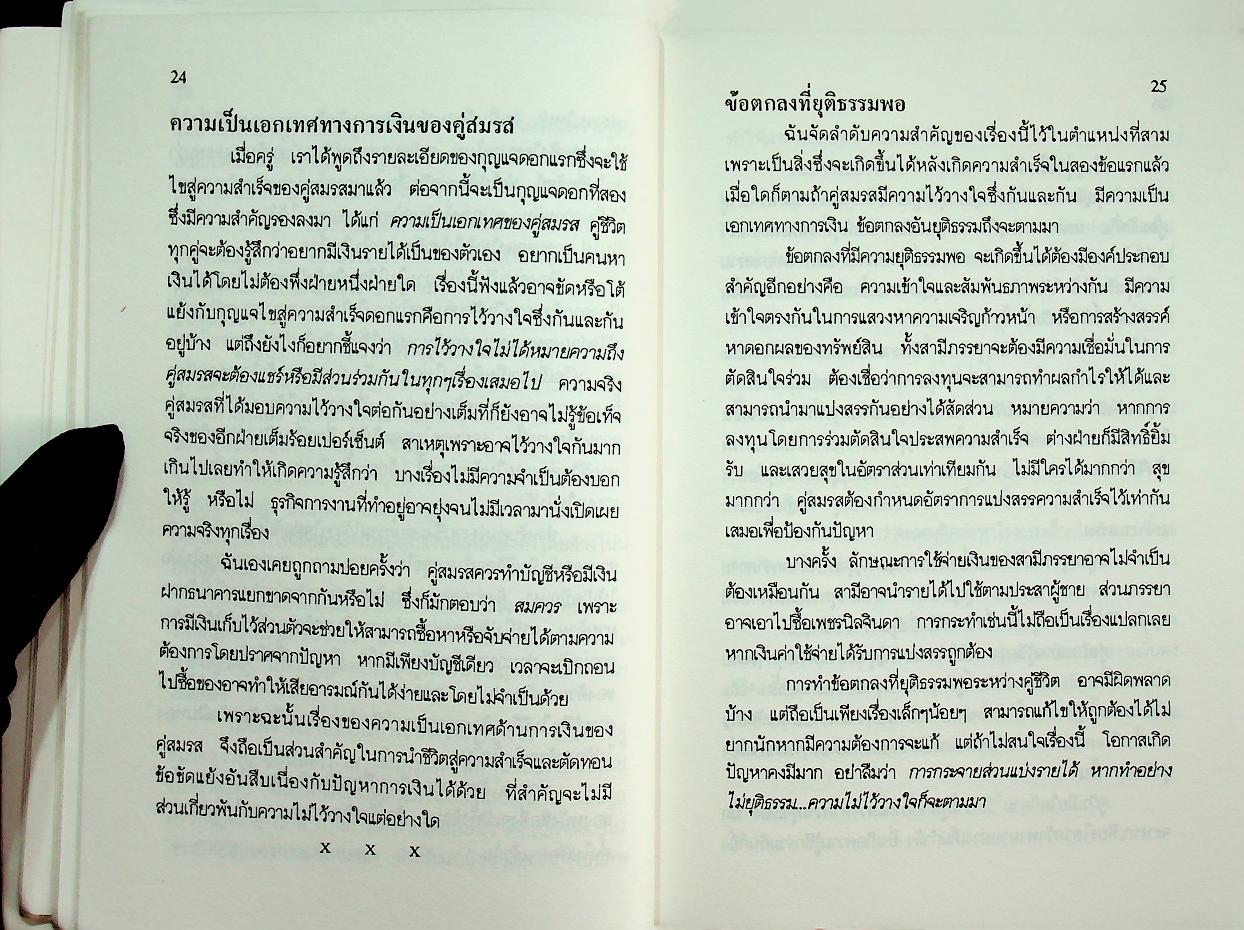 24
ความเป็นเอกเทศทางการเงินของคู่สมรส
เมื่อครู่ เราได้พูดถึงรายละเอียดของกุญแจดอกแรกซึ่งจะใช้
ไขสู่ความสำเร็จของคู่สมรสมาแล้ว ต่อจากนี้จะเป็นกุญแจดอกที่สอง
ซึ่งมีความสำคัญรองลงมา ได้แก่ ความเป็นเอกเทศของคู่สมรส คู่ชีวิต
ทุกคู่จะต้องรู้สึกว่าอยากมีเงินรายได้เป็นของตัวเอง อยากเป็นคนหา
เงินได้โดยไม่ต้องพึ่งฝ่ายหนึ่งฝ่ายใด เรื่องนี้ฟังแล้วอาจขัดหรือโต้
แย้งกับกุญแจไขสู่ความสำเร็จดอกแรกคือการไว้วางใจซึ่งกันและกัน
อยู่บ้าง แต่ถึงยังไงก็อยากชี้แจงว่า การไว้วางใจไม่ได้หมายความถึง
คู่สมรสจะต้องแชร์หรือมีส่วนร่วมกันในทุกๆเรื่องเสมอไป ความจริง
คู่สมรสที่ได้มอบความไว้วางใจต่อกันอย่างเต็มที่ก็ยังอาจไม่รู้ข้อเท็จ
จริงของอีกฝ่ายเต็มร้อยเปอร์เซ็นต์ สาเหตุเพราะอาจไว้วางใจกันมาก
เกินไปเลยทำให้เกิดความรู้สึกว่า บางเรื่องไม่มีความจำเป็นต้องบอก
ให้รู้ หรือไม่ ธุรกิจการงานที่ทำอยู่อาจยุ่งจนไม่มีเวลามานั่งเปิดเผย
ความจริงทุกเรื่อง
ฉันเองเคยถูกถามบ่อยครั้งว่า คู่สมรสควรทำบัญชีหรือมีเงิน
ฝากธนาคารแยกขาดจากกันหรือไม่ ซึ่งก็มักตอบว่า สมควร เพราะ
การมีเงินเก็บไว้ส่วนตัวจะช่วยให้สามารถซื้อหาหรือจับจ่ายได้ตามความ
ต้องการโดยปราศจากปัญหา หากมีเพียงบัญชีเดียว เวลาจะเบิกถอน
ไปซื้อของอาจทำให้เสียอารมณ์กันได้ง่ายและโดยไม่จำเป็นด้วย
เพราะฉะนั้นเรื่องของความเป็นเอกเทศด้านการเงินของ
คู่สมรส จึงถือเป็นส่วนสำคัญในการนำชีวิตสู่ความสำเร็จและตัดทอน
ข้อขัดแย้งอันสืบเนื่องกับปัญหาการเงินได้ด้วย ที่สำคัญจะไม่มี
ส่วนเกี่ยวพันกับความไม่ไว้วางใจแต่อย่างใด
x x x
25
ข้อตกลงที่ยุติธรรมพอ
ฉันจัดลำดับความสำคัญของเรื่องนี้ไว้ในตำแหน่งที่สาม
เพราะเป็นสิ่งซึ่งจะเกิดขึ้นได้หลังเกิดความสำเร็จในสองข้อแรกแล้ว
เมื่อใดก็ตามถ้าคู่สมรสมีความไว้วางใจซึ่งกันและกัน มีความเป็น
เอกเทศทางการเงิน ข้อตกลงอันยุติธรรมถึงจะตามมา
ข้อตกลงที่มีความยุติธรรมพอ จะเกิดขึ้นได้ต้องมีองค์ประกอบ
สำคัญอีกอย่างคือ ความเข้าใจและสัมพันธภาพระหว่างกัน มีความ
เข้าใจตรงกันในการแสวงหาความเจริญก้าวหน้า หรือการสร้างสรรค์
หาดอกผลของทรัพย์สิน ทั้งสามีภรรยาจะต้องมีความเชื่อมั่นในการ
ตัดสินใจร่วม ต้องเชื่อว่าการลงทุนจะสามารถทำผลกำไรให้ได้และ
สามารถนำมาแบ่งสรรกันอย่างได้สัดส่วน หมายความว่า หากการ
ลงทุนโดยการร่วมตัดสินใจประสพความสำเร็จ ต่างฝ่ายก็มีสิทธิ์ยิ้ม
รับ และเสวยสุขในอัตราส่วนเท่าเทียมกัน ไม่มีใครได้มากกว่า สุข
มากกว่า คู่สมรสต้องกำหนดอัตราการแบ่งสรรความสำเร็จไว้เท่ากัน
เสมอเพื่อป้องกันปัญหา
บางครั้ง ลักษณะการใช้จ่ายเงินของสามีภรรยาอาจไม่จำเป็น
ต้องเหมือนกัน สามีอาจนำรายได้ไปใช้ตามประสาผู้ชาย ส่วนภรรยา
อาจเอาไปซื้อเพชรนิลจินดา การกระทำเช่นนี้ไม่ถือเป็นเรื่องแปลกเลย
หากเงินค่าใช้จ่ายได้รับการแบ่งสรรถูกต้อง
การทำข้อตกลงที่ยุติธรรมพอระหว่างคู่ชีวิต อาจมีผิดพลาด
บ้าง แต่ถือเป็นเพียงเรื่องเล็กๆน้อยๆ สามารถแก้ไขให้ถูกต้องได้ไม่
ยากนักหากมีความต้องการจะแก้ แต่ถ้าไม่สนใจเรื่องนี้ โอกาสเกิด
ปัญหาคงมีมาก อย่าลืมว่า การกระจายส่วนแบ่งรายได้ หากทำอย่าง
ไม่ยุติธรรม...ความไม่ไว้วางใจก็จะตามมา